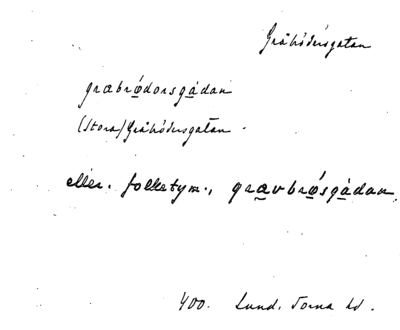 Gråbrödersgatan
græbrødorsgådan
(Stora) Gråbrödersgatan.
eller. folketym., grævbrøsgådan.
400. Lund. Torna hd.